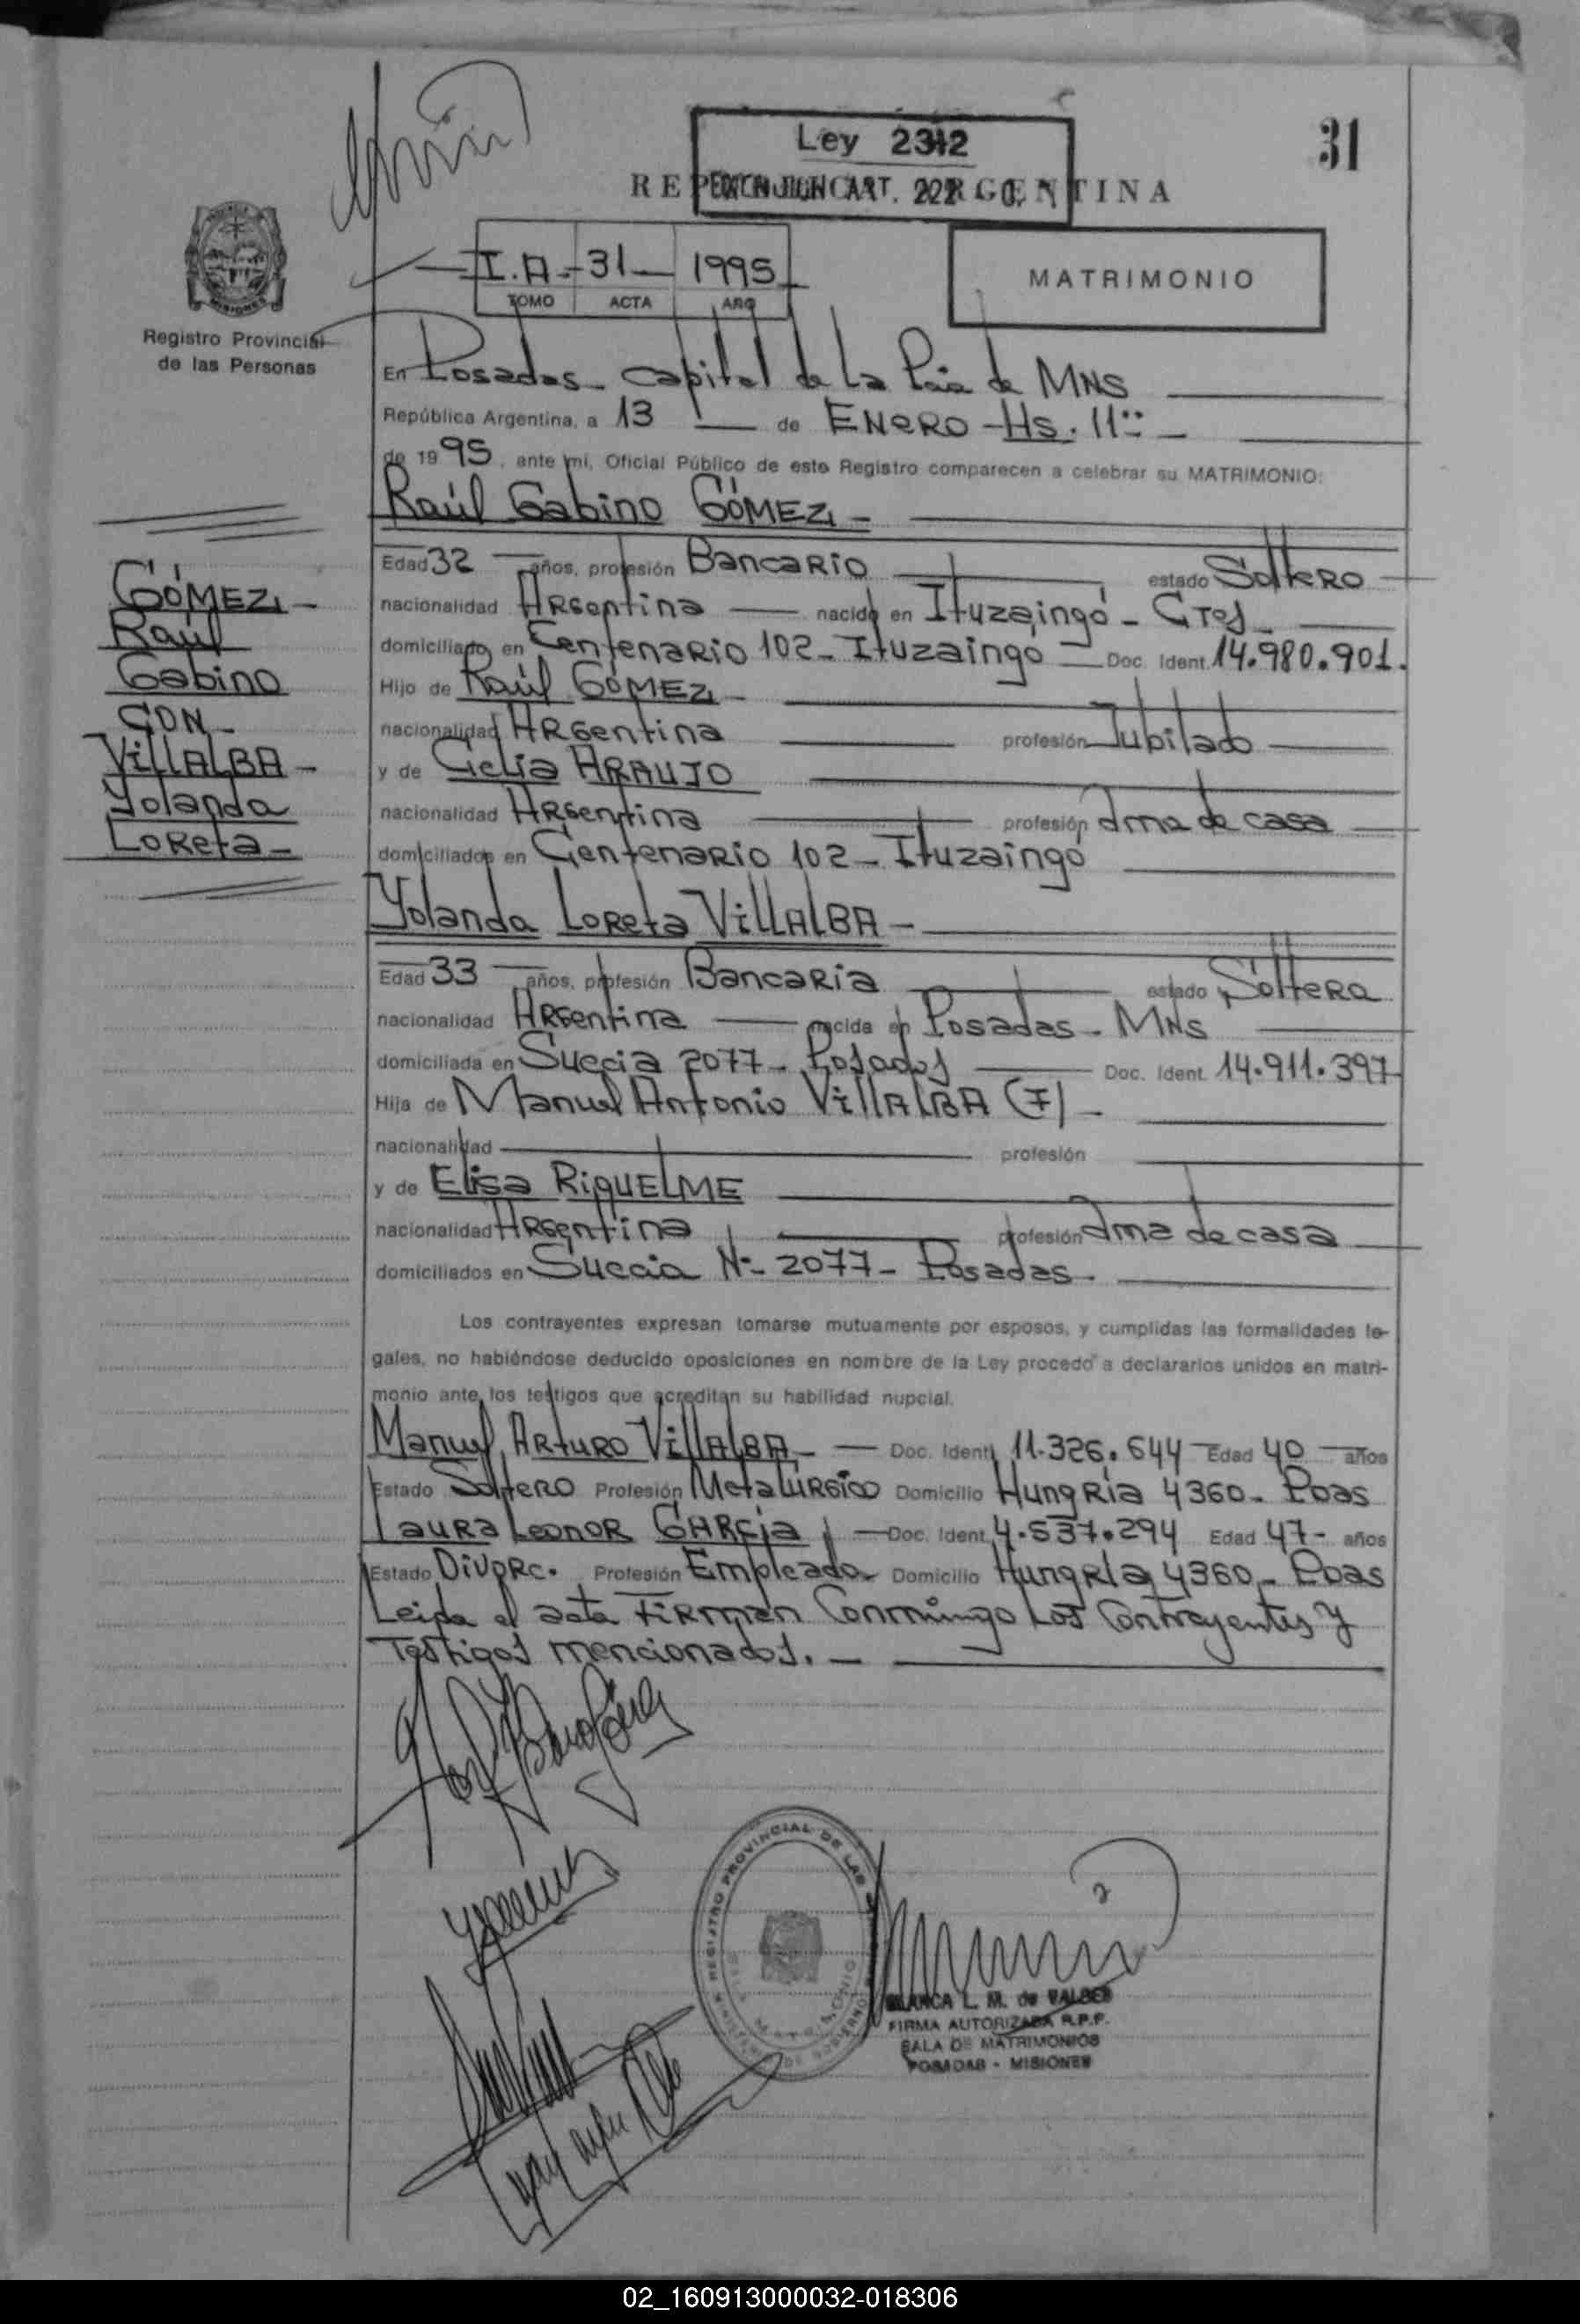 Ley 2312
31
REPUBLICA ARGENTINA
I.A.- 31 1995
TOMO ACTA AÑO
MATRIMONIO
MISIONES
Registro Provincial
de las Personas
En Posadas - Capital de la Pcia de MNS
República Argentina, a 13 de ENERO - Hs. 11
de 1995, ante mí, Oficial Público de este Registro comparecen a celebrar su MATRIMONIO:
Raúl Gabino GÓMEZ -
Edad 32 años, profesión Bancario estado Soltero
nacionalidad Argentina nacido en Ituzaingó - Ctes
domiciliado en Centenario 102 - Ituzaingó Doc. Ident. 14.980.901.
Hijo de Raúl GÓMEZ -
nacionalidad Argentina profesión Jubilado
y de Celia ARAUJO
nacionalidad Argentina profesión ama de casa
domiciliados en Centenario 102 - Ituzaingó
GÓMEZ -
Raúl
Gabino
CON -
VILLALBA -
Yolanda
Loreta -
Yolanda Loreta VILLALBA -
Edad 33 años, profesión Bancaria estado Soltera
nacionalidad Argentina nacida en Posadas - MNS
domiciliada en Suecia 2077 - Posadas Doc. Ident. 14.911.397
Hija de Manuel Antonio VILLALBA (F) -
nacionalidad profesión
y de Elisa RIQUELME
nacionalidad Argentina profesión ama de casa
domiciliados en Suecia Nº 2077 - Posadas.
Los contrayentes expresan tomarse mutuamente por esposos, y cumplidas las formalidades le-
gales, no habiéndose deducido oposiciones en nombre de la Ley procedo a declararlos unidos en matri-
monio ante los testigos que acreditan su habilidad nupcial.
Manuel Arturo VILLALBA - Doc. Ident. 11.326.644 Edad 40 años
Estado Soltero Profesión Metalúrgico Domicilio Hungría 4360 - Pdas
Laura Leonor GARCía - Doc. Ident. 4.537.294 Edad 47 - años
Estado Divorc. Profesión Empleada Domicilio Hungría 4360 - Pdas
Leída el acta Firman Conmingo Los Contrayentes y
Testigos mencionados. -
REGISTRO PROVINCIAL DE LAS
MATRIMONIO
BLANCA L. M. de VALDES
FIRMA AUTORIZADA R.P.P.
SALA DE MATRIMONIOS
POSADAS - MISIONES
02_160913000032-018306